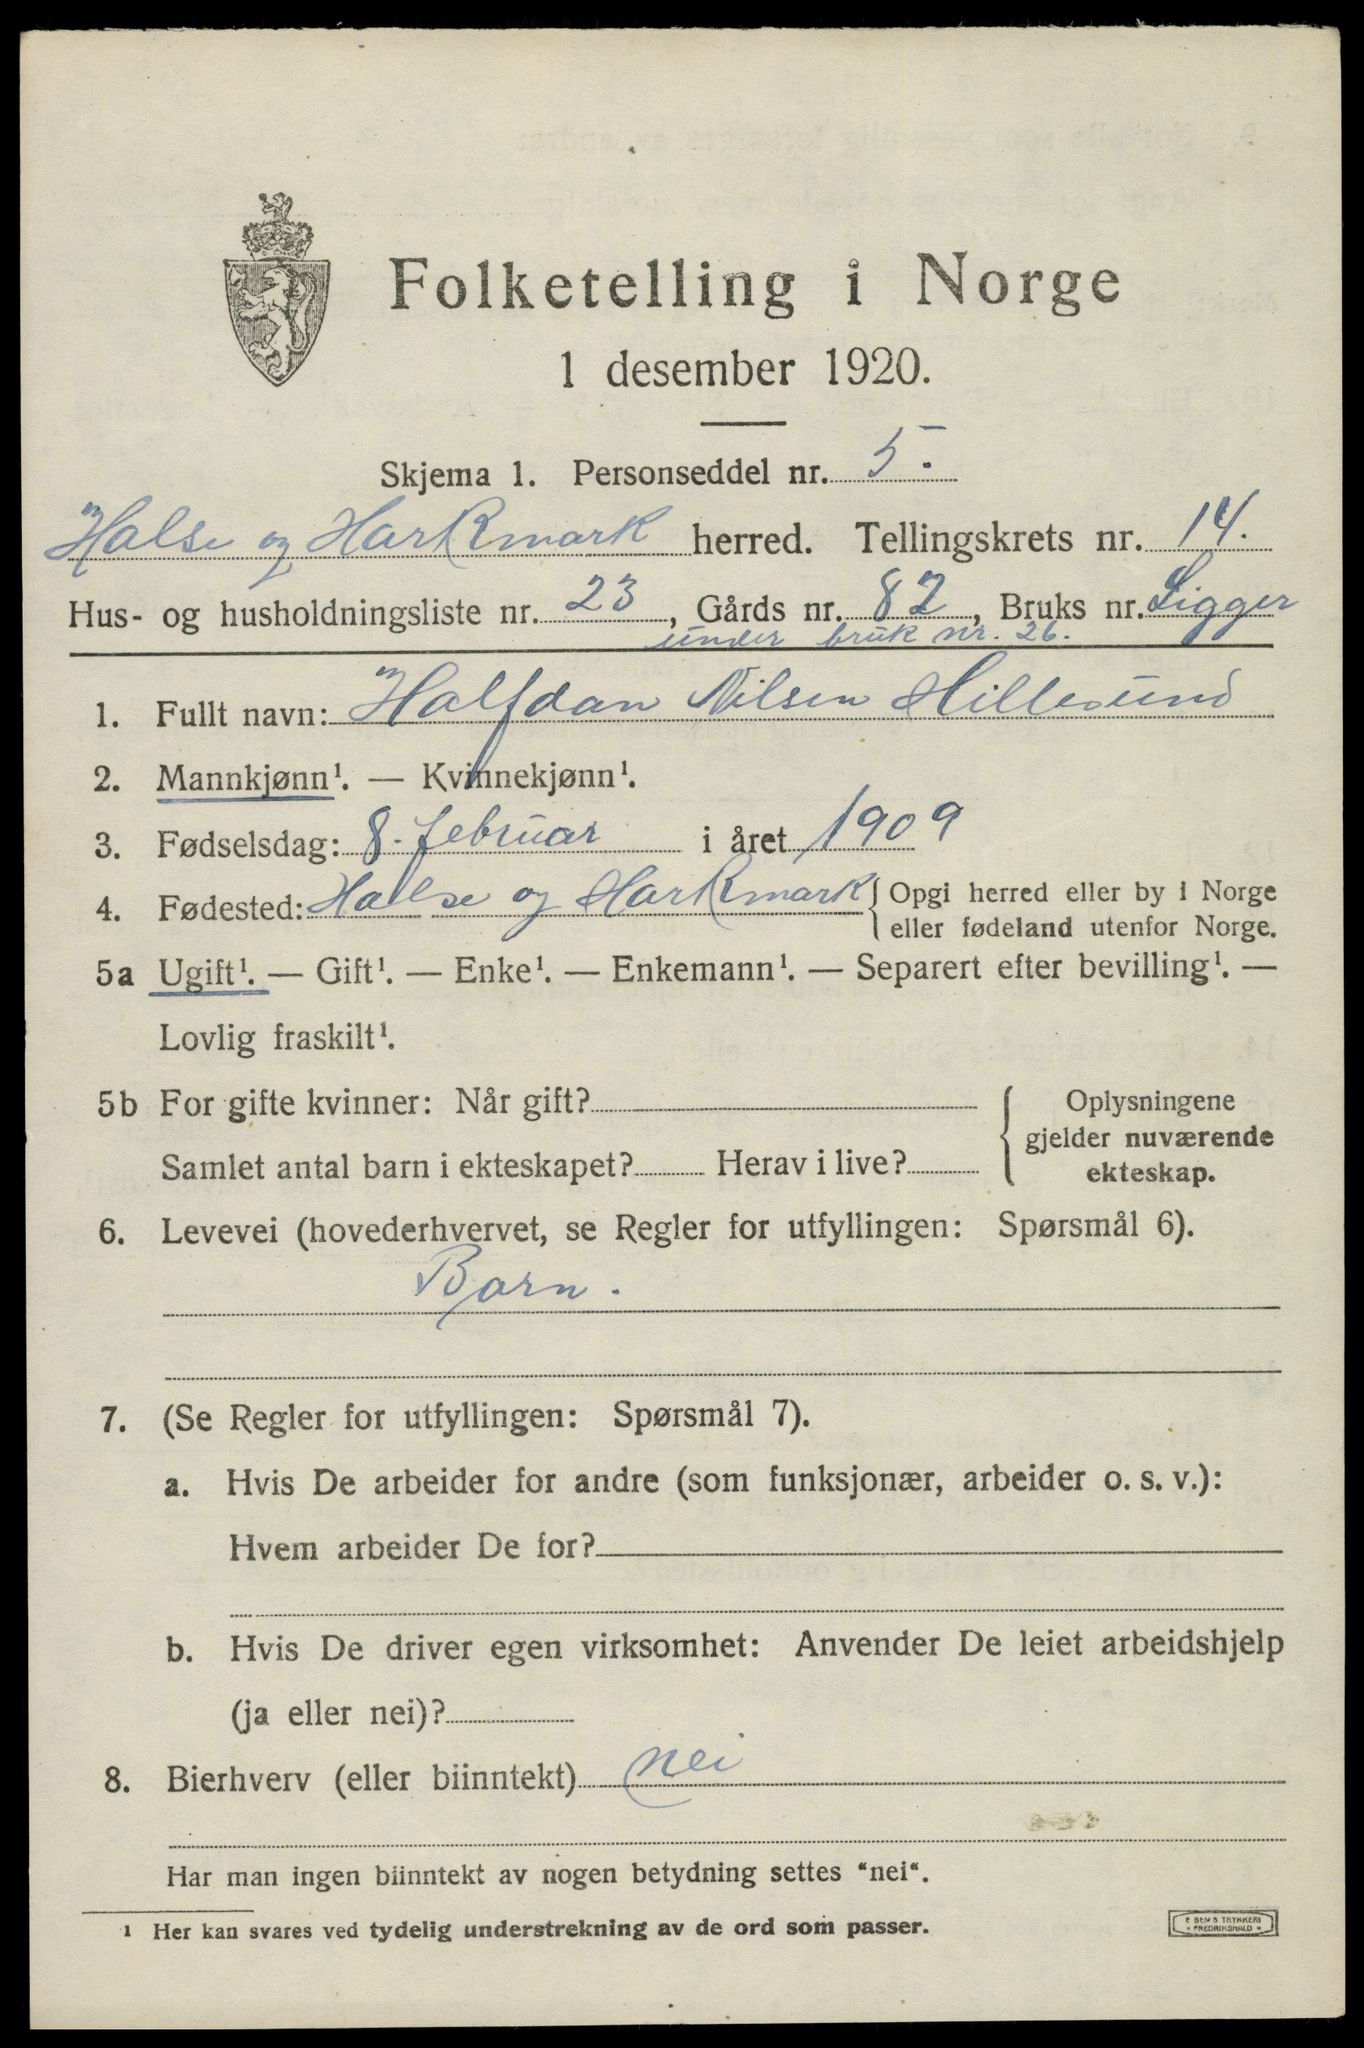 Folketelling i Norge
1 desember 1920.
Skjema 1. Personseddel nr. 5.
Halse og Harkmark herred. Tellingskrets nr. 14.
Hus- og husholdningsliste nr. 23, Gårds nr. 82, Bruks nr. Ligger
under bruk nr. 26.
1. Fullt navn: Halfdan Nilsen Hillesund
2. Mannkjønn¹. — Kvinnekjønn¹.
3. Fødselsdag: 8. februar i året 1909
4. Fødested: Halse og Harkmark { Opgi herred eller by i Norge
eller fødeland utenfor Norge.
5a Ugift¹. — Gift¹. — Enke¹. — Enkemann¹. — Separert efter bevilling¹. —
Lovlig fraskilt¹.
5b For gifte kvinner: Når gift?
Samlet antal barn i ekteskapet? Herav i live?
{ Oplysningene
gjelder nuværende
ekteskap.
6. Levevei (hovederhvervet, se Regler for utfyllingen: Spørsmål 6).
Barn.
7. (Se Regler for utfyllingen: Spørsmål 7).
a. Hvis De arbeider for andre (som funksjonær, arbeider o. s. v.):
Hvem arbeider De for?
b. Hvis De driver egen virksomhet: Anvender De leiet arbeidshjelp
(ja eller nei)?
8. Bierhverv (eller biinntekt) nei
Har man ingen biinntekt av nogen betydning settes "nei".
¹ Her kan svares ved tydelig understrekning av de ord som passer.
TRYKKERI
FREDRIKSHALD